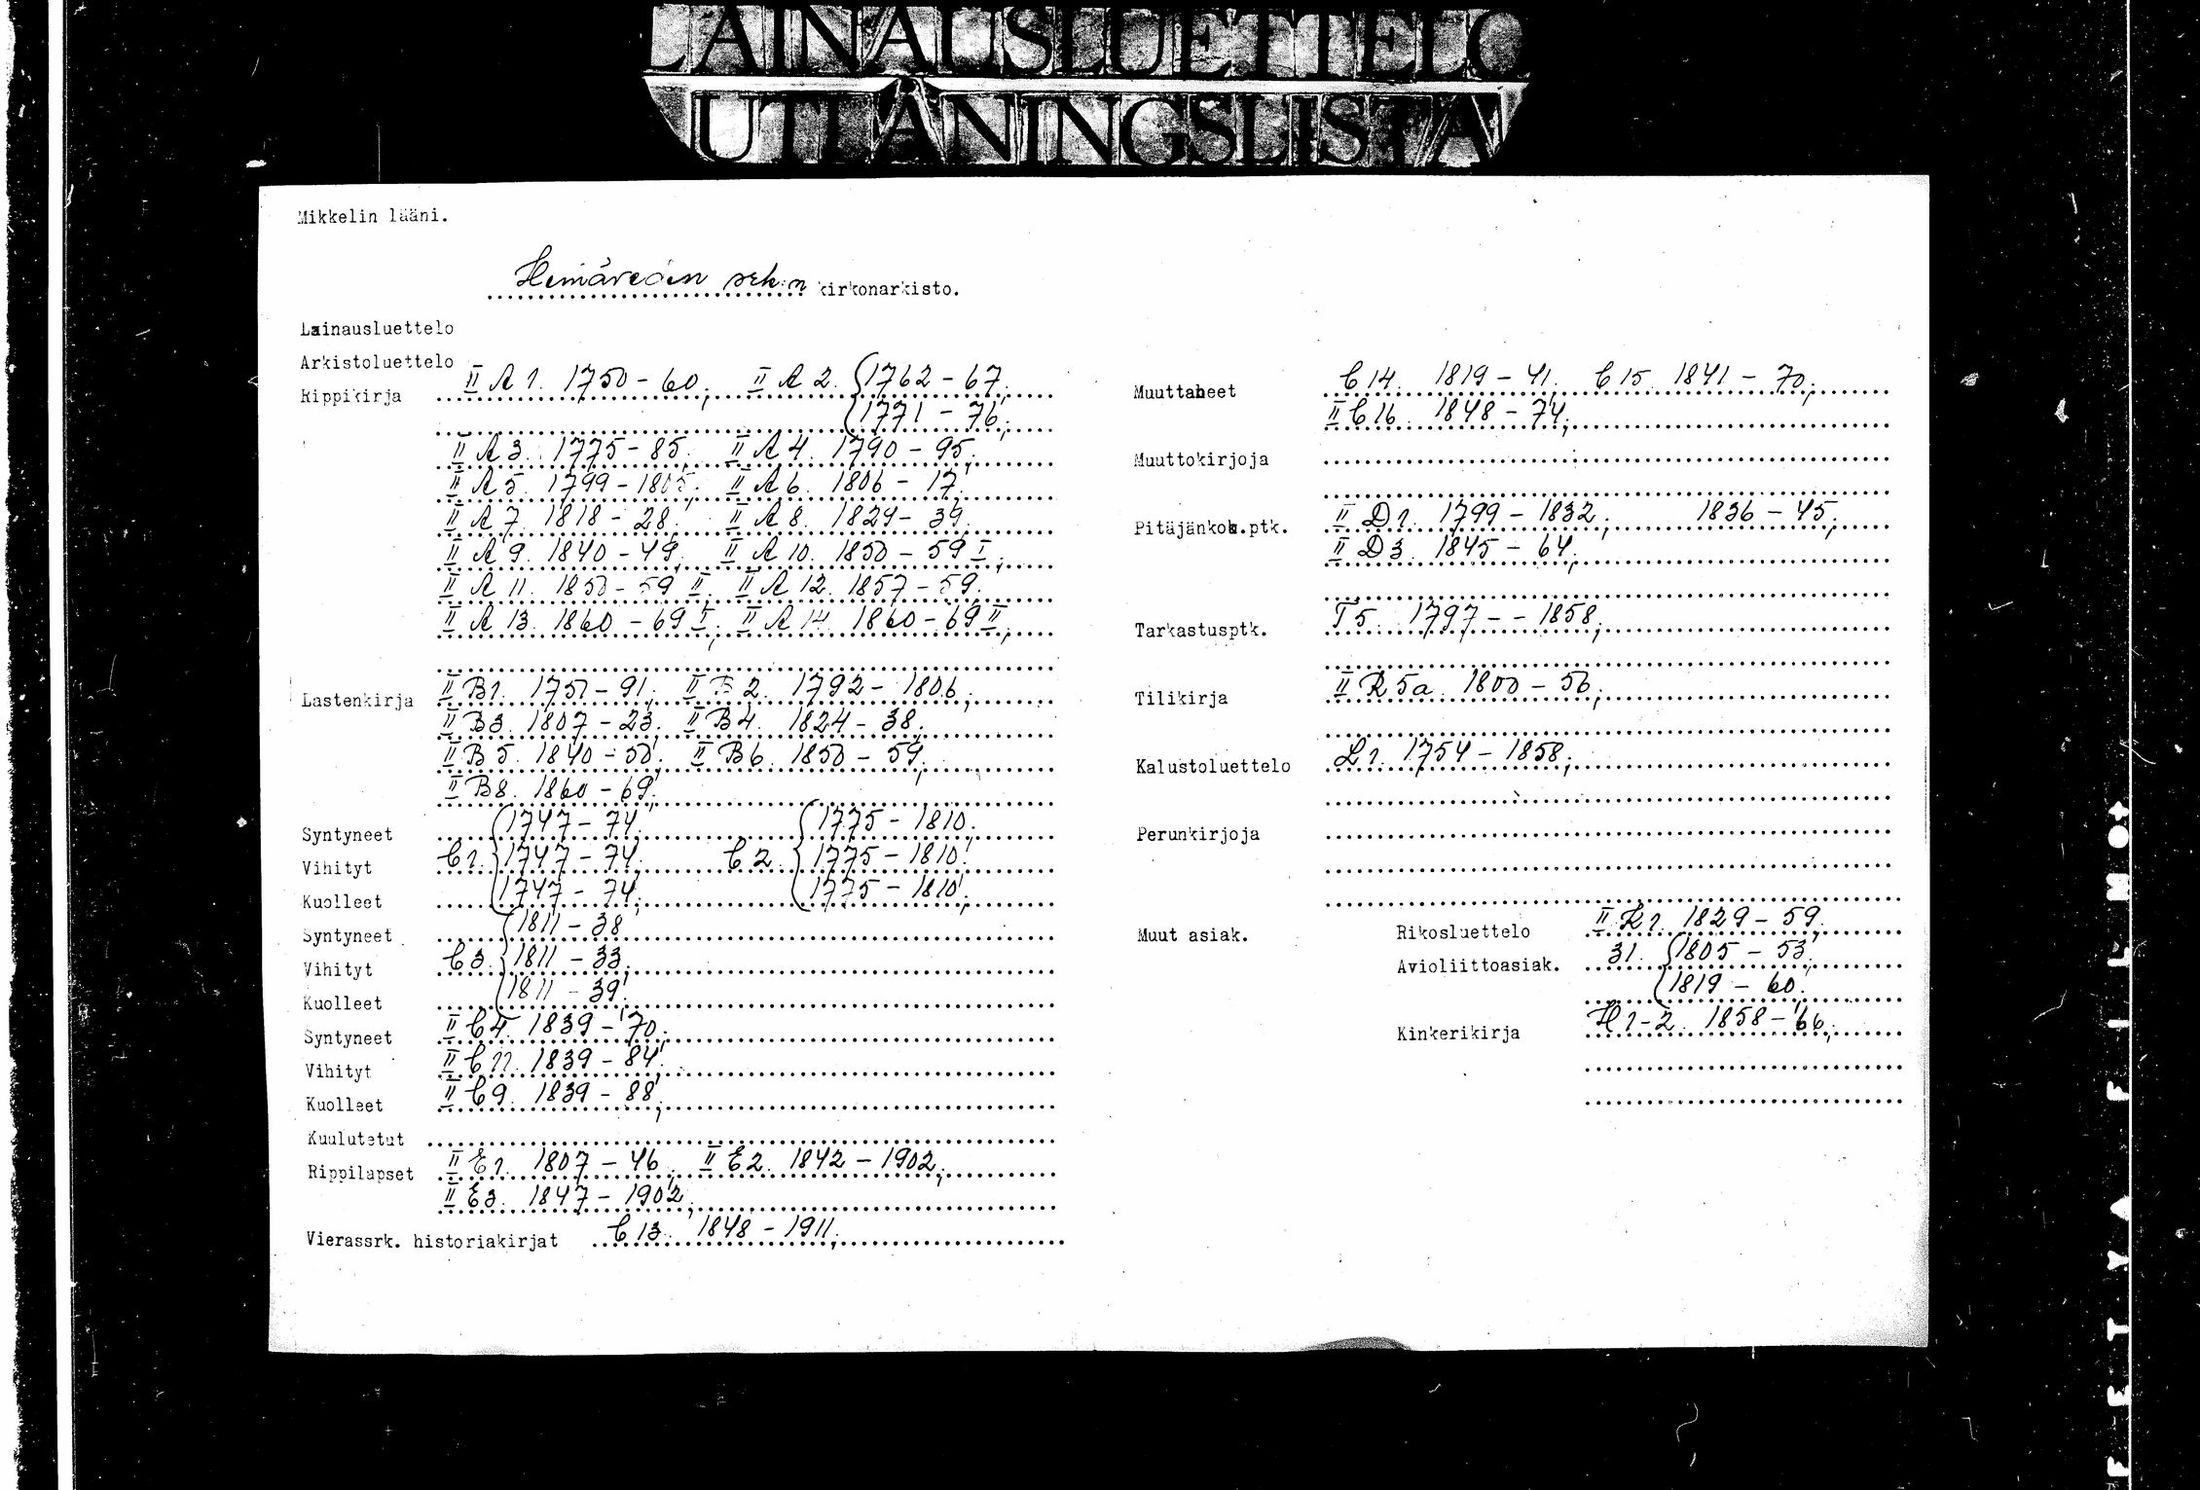 LAINAUSLUETTELO
UTLÅNINGSLISTA
Mikkelin lääni.
Heinäveden srk:n kirkonarkisto.
Lainausluettelo
Arkistoluettelo
Rippikirja II A 1. 1750-60; II A 2. 1762-67;
1771-76;
II A 3. 1775-85. II A 4. 1790-95;
II A 5. 1799-1805; II A 6. 1806-17;
II A 7. 1818-28; II A 8. 1829-39;
II A 9. 1840-49; II A 10. 1850-59 I;
II A 11. 1850-59 II. II A 12. 1857-59.
II A 13. 1860-69 I; II A 14. 1860-69 II;
Lastenkirja II B 1. 1751-91; II B 2. 1792-1806;
II B 3. 1807-23; II B 4. 1824-38;
II B 5. 1840-50; II B 6. 1850-59;
II B 8. 1860-69;
Syntyneet 1747-74; 1775-1810;
Vihityt C 1. 1747-74; C 2. 1775-1810;
Kuolleet 1747-74; 1775-1810;
Syntyneet 1811-38
Vihityt C 3. 1811-33;
Kuolleet 1811-39;
Syntyneet II C 4. 1839-70;
Vihityt II C 11. 1839-84;
Kuolleet II C 9. 1839-88;
Kuulutetut
Rippilapset II E 1. 1807-46; II E 2. 1842-1902;
II E 3. 1847-1902;
Vierassrk. historiakirjat C 13. 1848-1911;
Muuttaneet C 14. 1819-41. C 15. 1841-70;
II C 16. 1848-74;
Muuttokirjoja
Pitäjänkok.ptk. II D 1. 1799-1832; 1836-45;
II D 3. 1845-64;
Tarkastusptk. T 5. 1797--1858;
Tilikirja II R 5a. 1800-56;
Kalustoluettelo L 1. 1754-1858;
Perunkirjoja
Muut asiak. Rikosluettelo II K 1. 1829-59.
Avioliittoasiak. 31. 1805-53;
1819-60.
Kinkerikirja H 1-2. 1858-66;